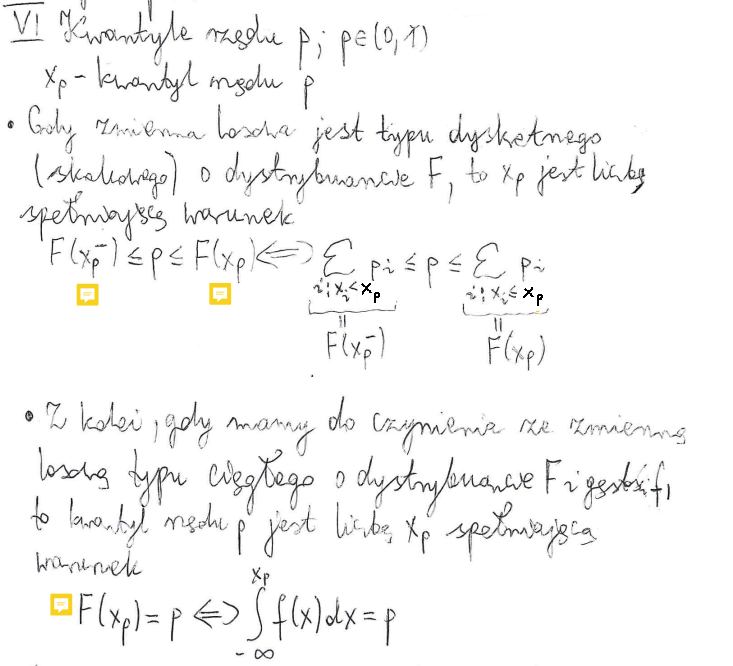 VI Kwantyle rzędu p; p∈(0,1)
x_p - kwantyl rzędu p
• Gdy zmienna losowa jest typu dyskretnego
(skokowego) o dystrybuancie F, to x_p jest liczbą
spełniającą warunek
F(x_p^-) ≤ p ≤ F(x_p) ⟺ ∑ p_i ≤ p ≤ ∑ p_i
i: x_i < x_p i: x_i ≤ x_p
= =
F(x_p^-) F(x_p)
• Z kolei, gdy mamy do czynienia ze zmienną
losową typu ciągłego o dystrybuancie F i gęstości f,
to kwantyl rzędu p jest liczbą x_p spełniającą
warunek
F(x_p) = p ⟺ ∫_{-∞}^{x_p} f(x)dx = p